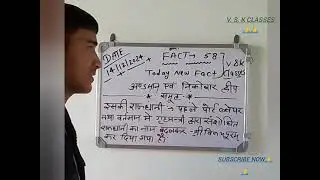 V. S. K CLASSES
DATE
14/12/2024
FACT → 58
Today New Fact
अण्डमान एवं निकोबार द्वीप
समूह
इसकी राजधानी → पहले पोर्ट ब्लेयर
तथा वर्तमान में गृहमंत्री द्वारा संशोधित
राजधानी का नाम बदलकर - श्री विजयपुरम
कर दिया गया है।
SUBSCRIBE NOW